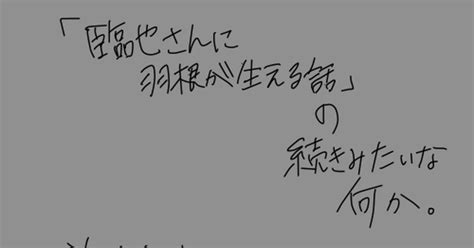 「臨也さんに
羽根が生える話」
の
続きみたいな
何か。